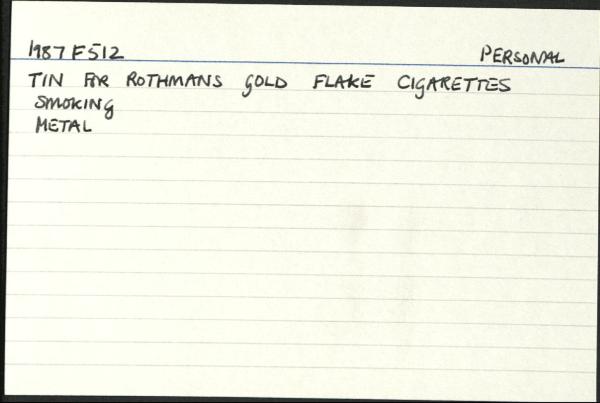 1987 F512 PERSONAL
TIN FOR ROTHMANS GOLD FLAKE CIGARETTES
SMOKING
METAL